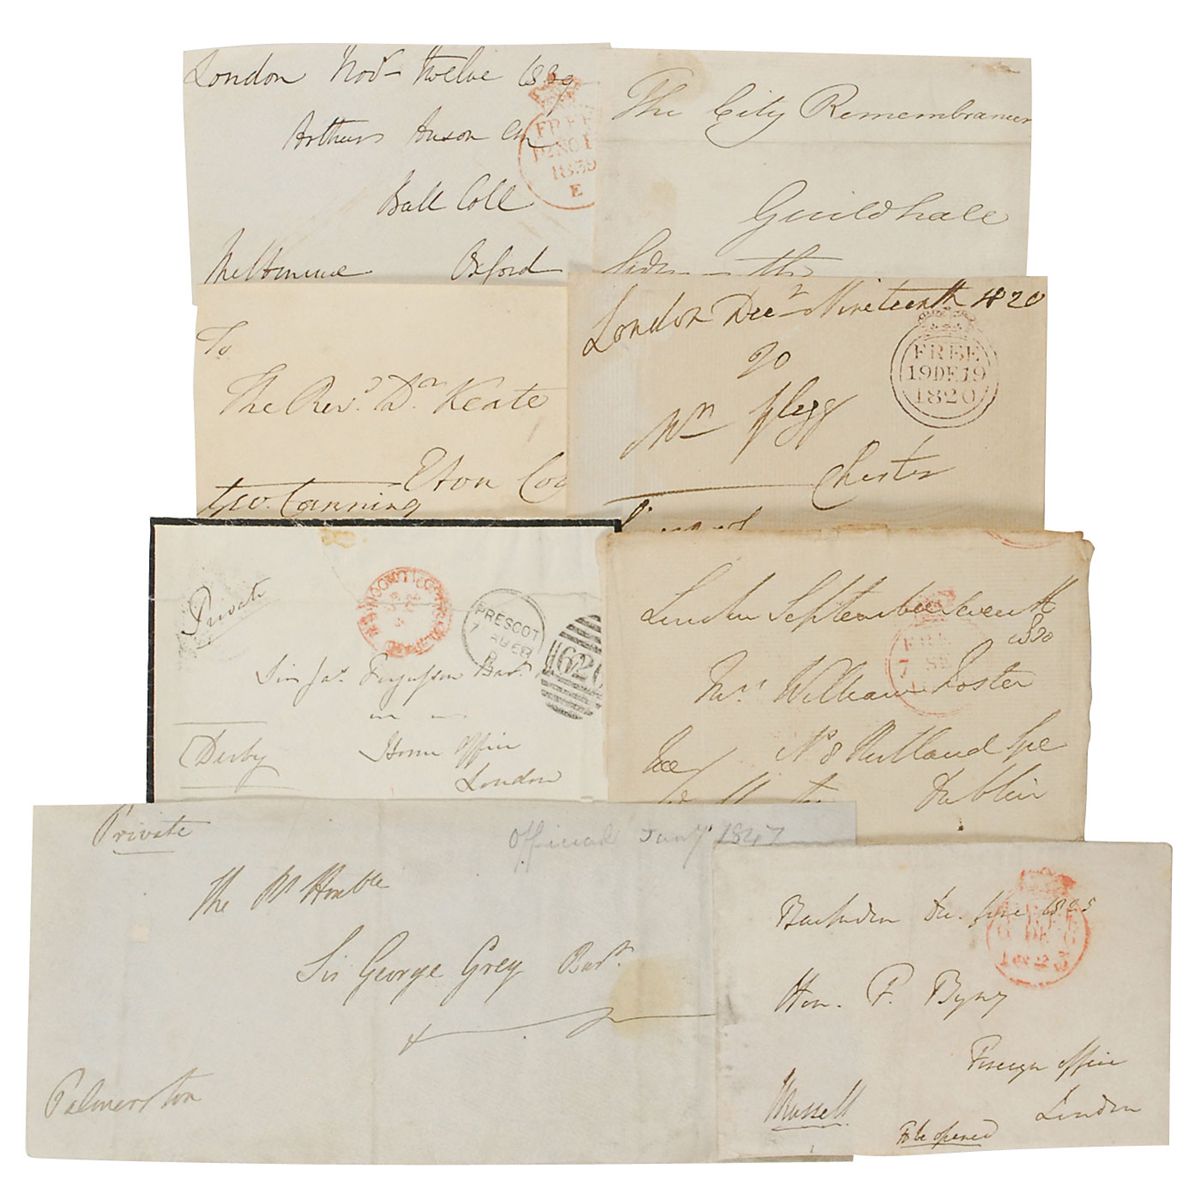 London Novr Twelve 1839
Arthur Anson Esq
Ball Coll
Melbourne Oxford
FREE
12 NO 1
1839
E
The City Remembrancer
Guildhall
To
The Revd. Dr Keate
Eton Co
Geo. Canning
London Decr Nineteenth 1820
Chester
FREE
19DE19
1820
Private
PRESCOT
620
Sir Jas. Fergusson Bart
Home Office
Derby
London
London September Seventh
1830
FREE
7 SE
Mr. William Foster
No 8 Rutland Sqe
Dublin
Private
Official Jany 1847
The Rt Honble
Sir George Grey Bart.
Palmerston
Hon. F. Byng
Foreign Office
London
Russell
To be opened